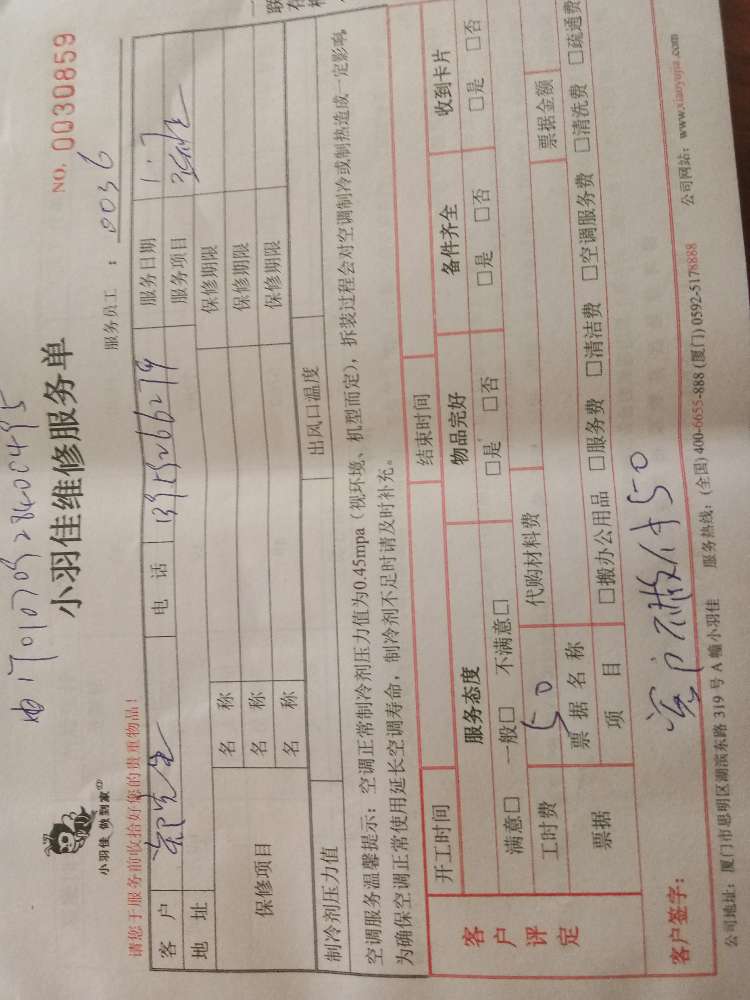 NO. 0030859
小羽佳 做到家
小羽佳维修服务单
服务员工：0036
请您于服务前收拾好您的贵重物品！
客户 电话 服务日期 1.7
地址 服务项目
保修项目 名称 保修期限
名称 保修期限
名称 保修期限
制冷剂压力值 出风口温度
空调服务温馨提示：空调正常制冷剂压力值为0.45mpa（视环境、机型而定），拆装过程会对空调制冷或制热造成一定影响，
为确保空调正常使用延长空调寿命，制冷剂不足时请及时补充。
客户评定
开工时间 结束时间
服务态度 物品完好 备件齐全 收到卡片
满意□ 一般□ 不满意□ □是 □否 □是 □否 □是 □否
工时费 50 代购材料费
票据 票据名称 票据金额
项目 □搬办公用品 □服务费 □清洁费 □空调服务费 □清洗费 □疏通费
客户签字： 客户不做付50
公司地址：厦门市思明区湖滨东路319号A幢小羽佳 服务热线：(全国)400-6655-888 (厦门)0592-5178888 公司网站：www.xiaoyujia.com